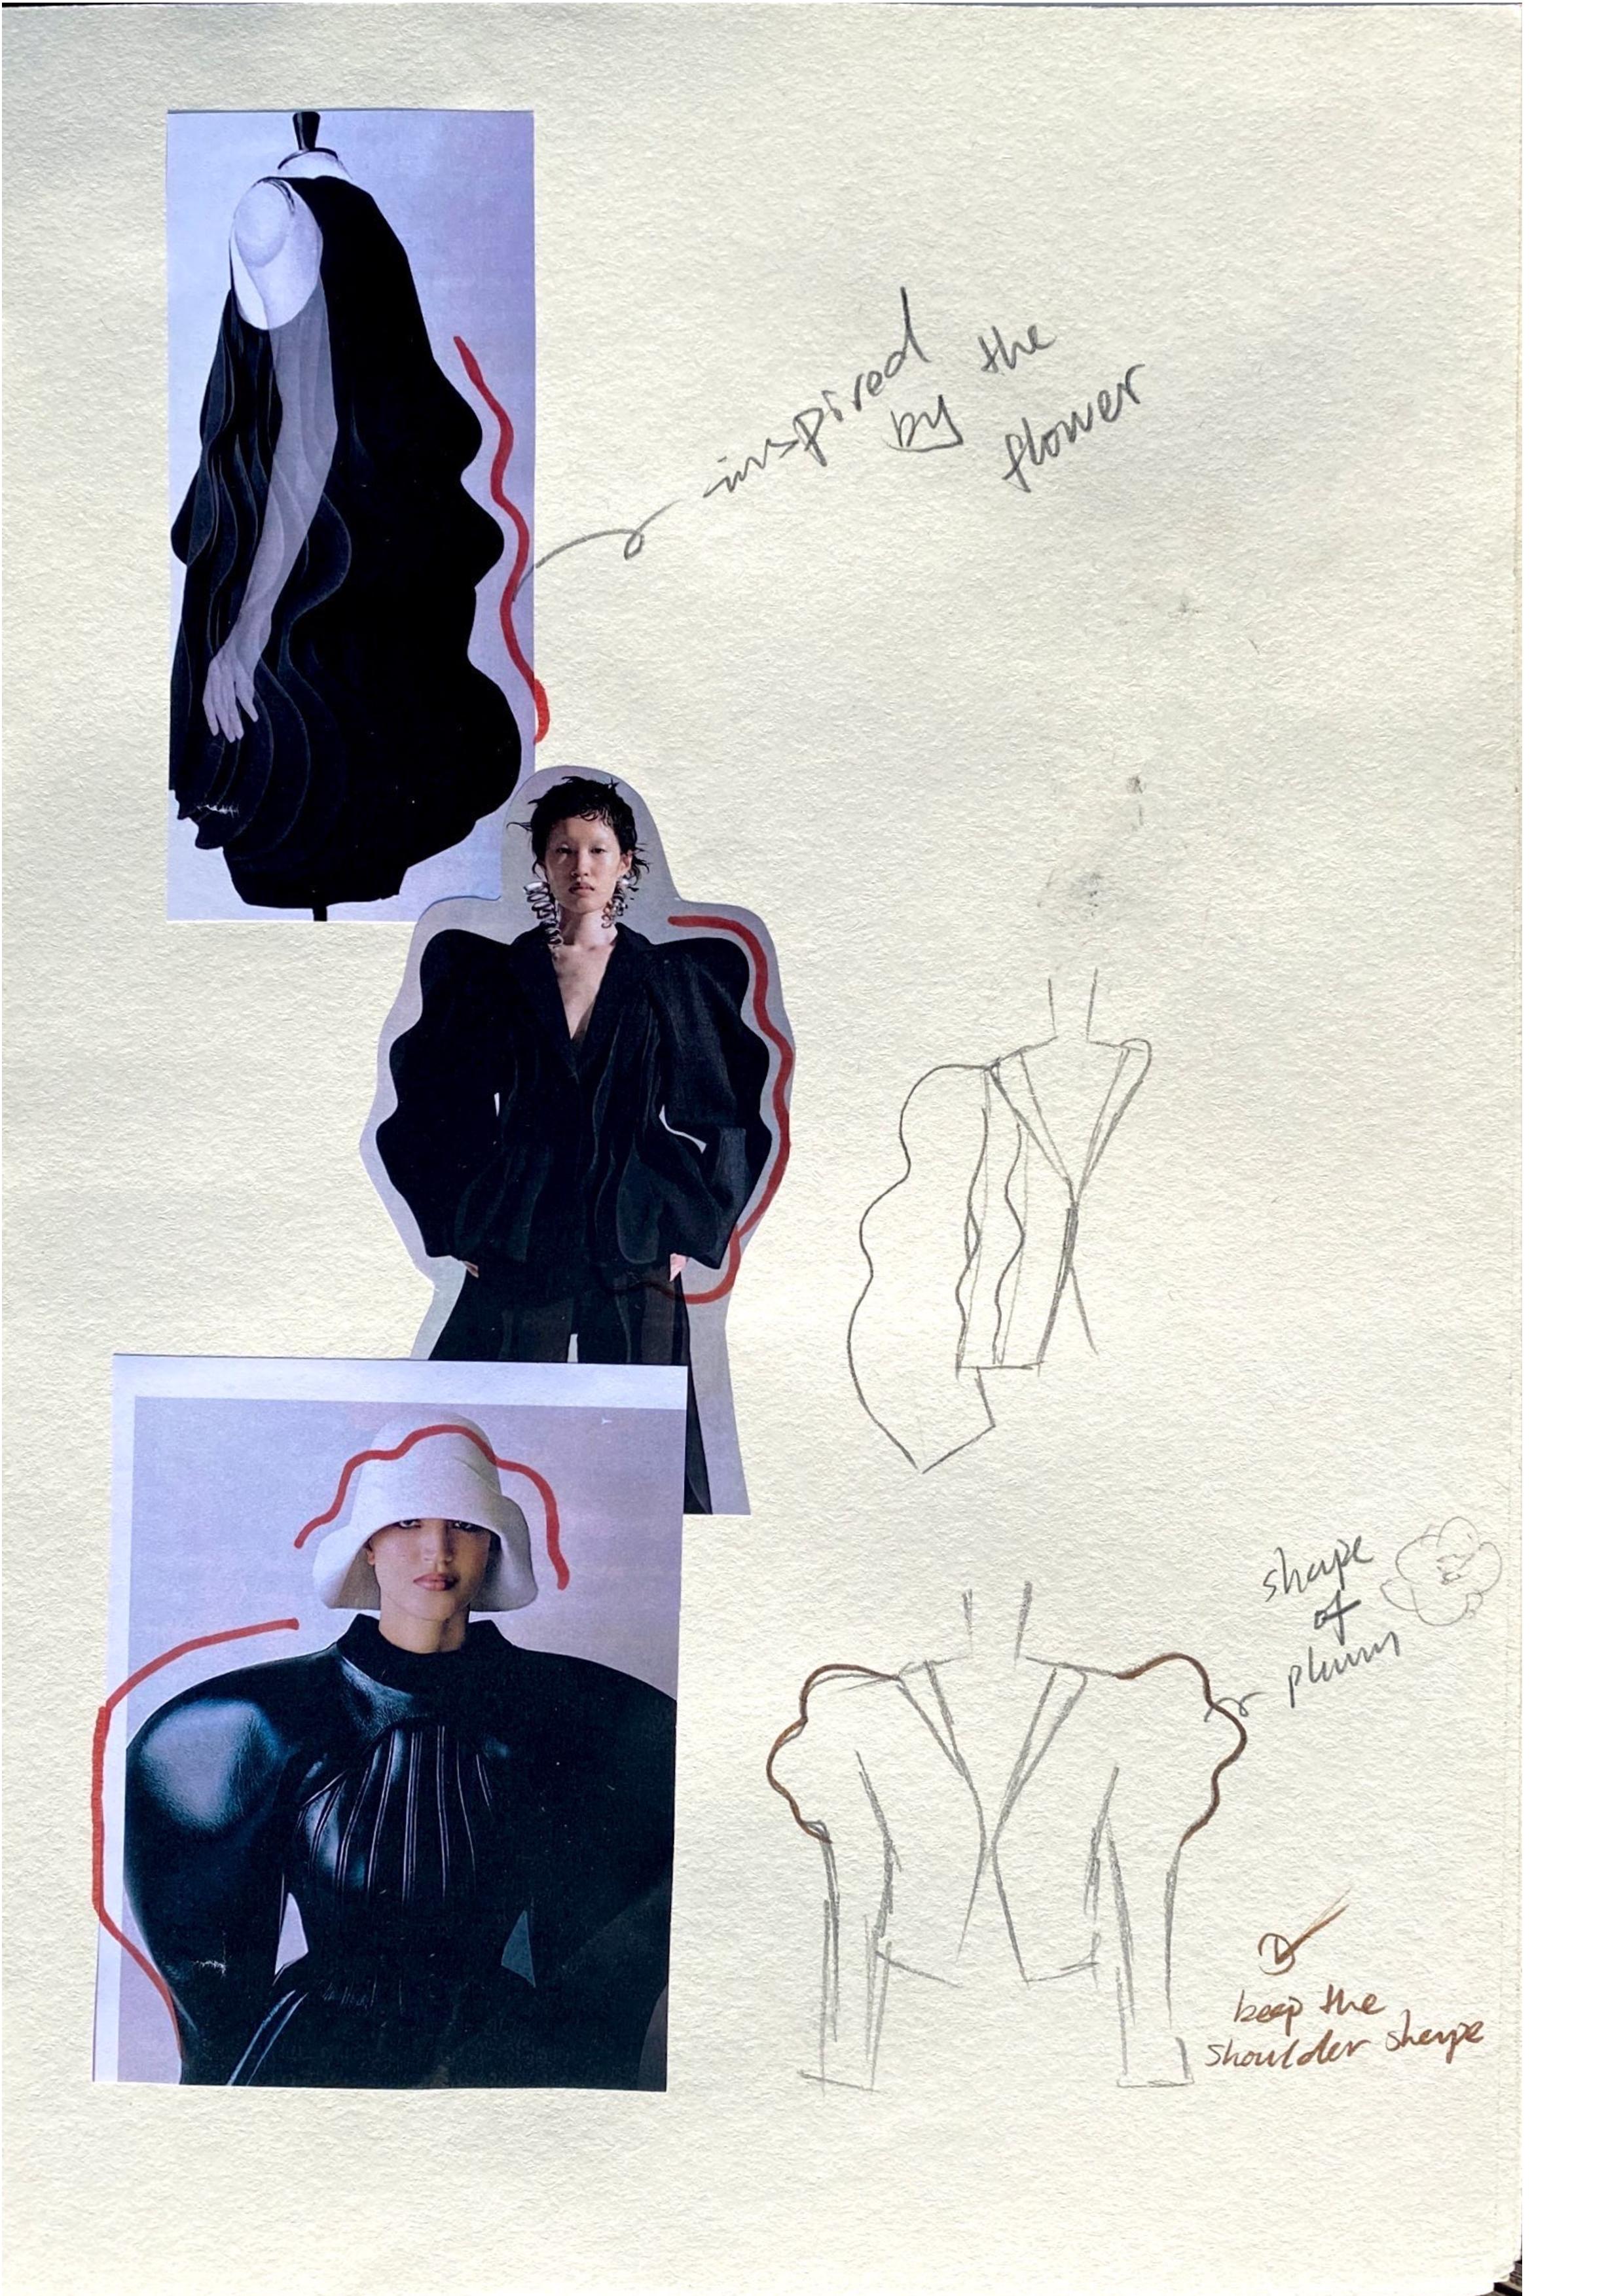 inspired
by the
flower
shape
of
plum
keep the
shoulder shape